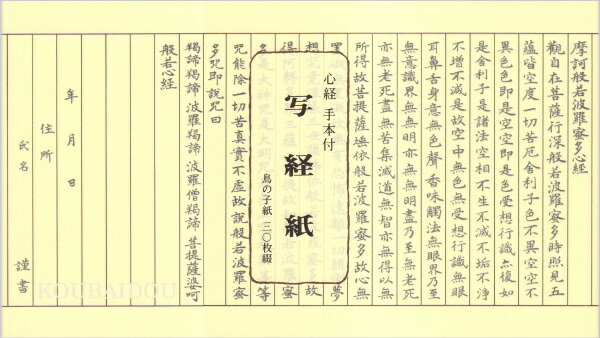 摩訶般若波羅蜜多心経
觀自在菩薩行深般若波羅蜜多時照見五
蘊皆空度一切苦厄舎利子色不異空空不
異色色即是空空即是色受想行識亦復如
是舎利子是諸法空相不生不滅不垢不浄
不増不減是故空中無色無受想行識無眼
耳鼻舌身意無色聲香味觸法無眼界乃至
無意識界無無明亦無無明盡乃至無老死
亦無老死盡無苦集滅道無智亦無得以無
所得故菩提薩埵依般若波羅蜜多故心無
心経 手本付
写経紙
鳥の子紙 三〇枚綴
夢
想 故
得 蜜
等
呪能除一切苦真實不虚故説般若波羅蜜
多呪即説呪曰
羯諦羯諦 波羅羯諦 波羅僧羯諦 菩提薩婆呵
般若心経
年 月 日
住所
氏名 謹書
KOUBAIDOU